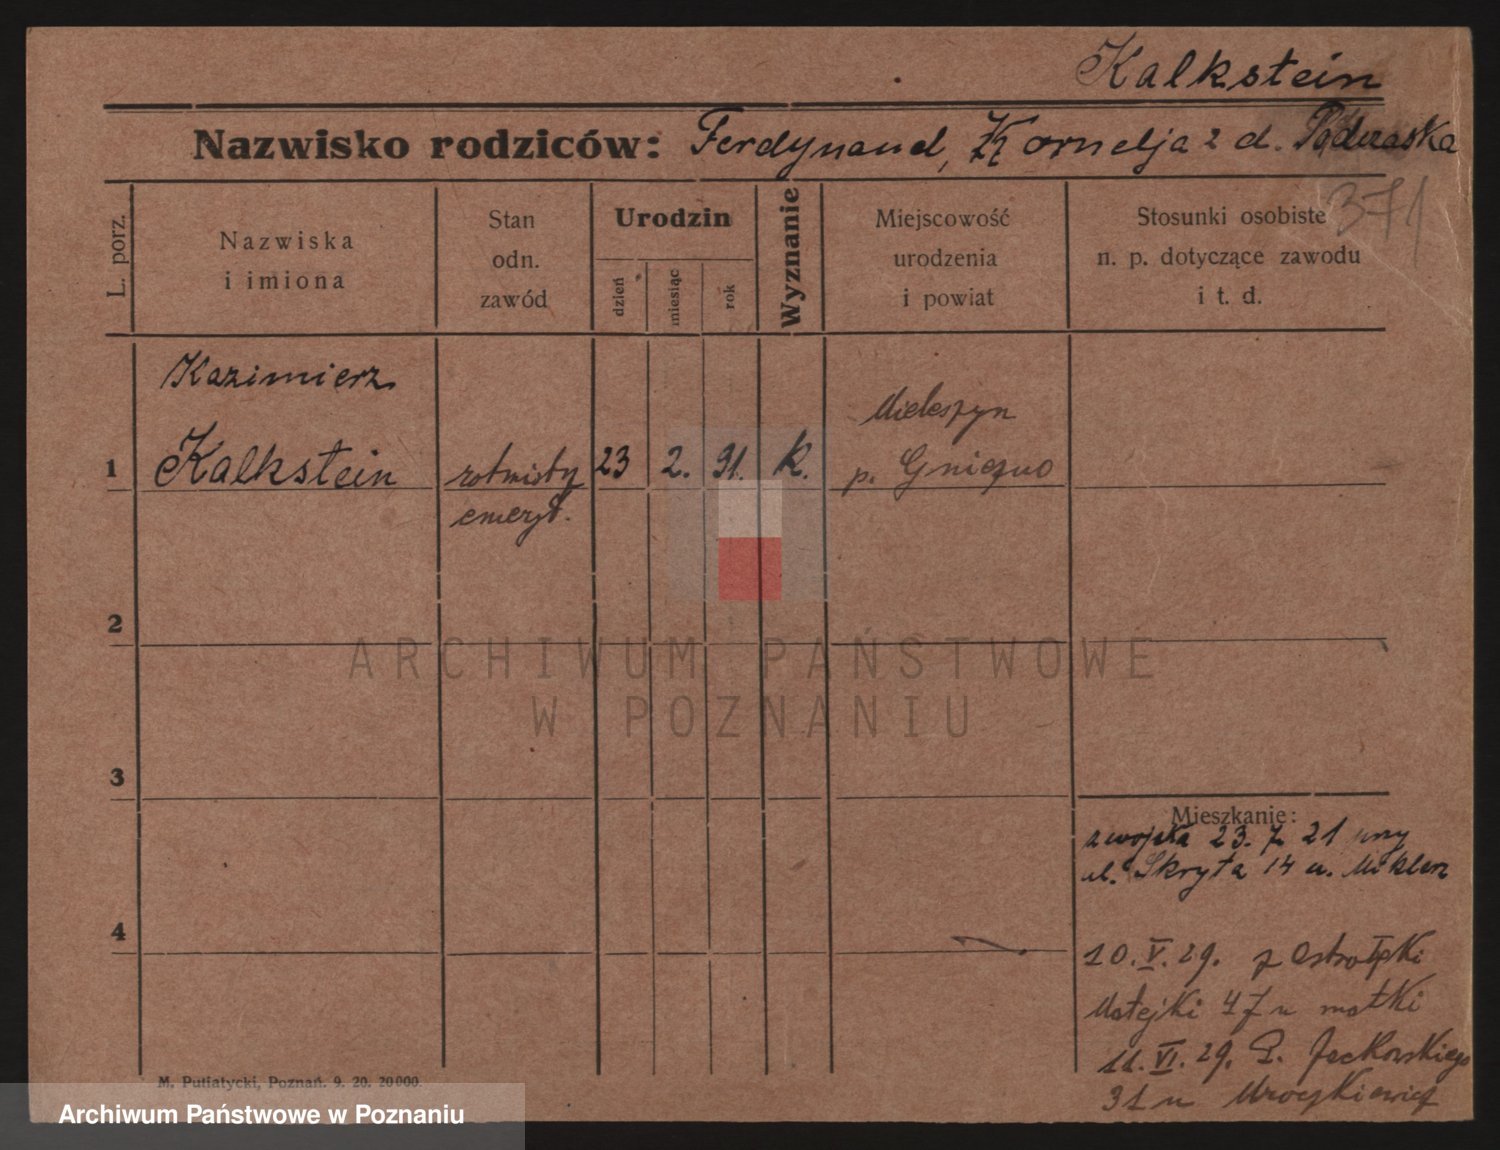 Kalkstein
Nazwisko rodziców: Ferdynand, Kornelja z d.
371
L. porz.
Nazwiska
i imiona
Stan
odn.
zawód
Urodzin
dzień
miesiąc
rok
Wyznanie
Miejscowość
urodzenia
i powiat
Stosunki osobiste
n. p. dotyczące zawodu
i t. d.
1
Kazimierz
Kalkstein
emeryt.
23
2.
91.
k.
Mieleszyn
p. Gniezno
2
3
4
Mieszkanie:
z wojska 23. 7. 21 przy
ul. Skryta 14 u.
10. V. 29. z
Matejki 47 u matki
11. VI. 29. P. Jackowskiego
31 u
M. Putiatycki, Poznań. 9. 20. 20000.
ARCHIWUM PAŃSTWOWE
W POZNANIU
Archiwum Państwowe w Poznaniu